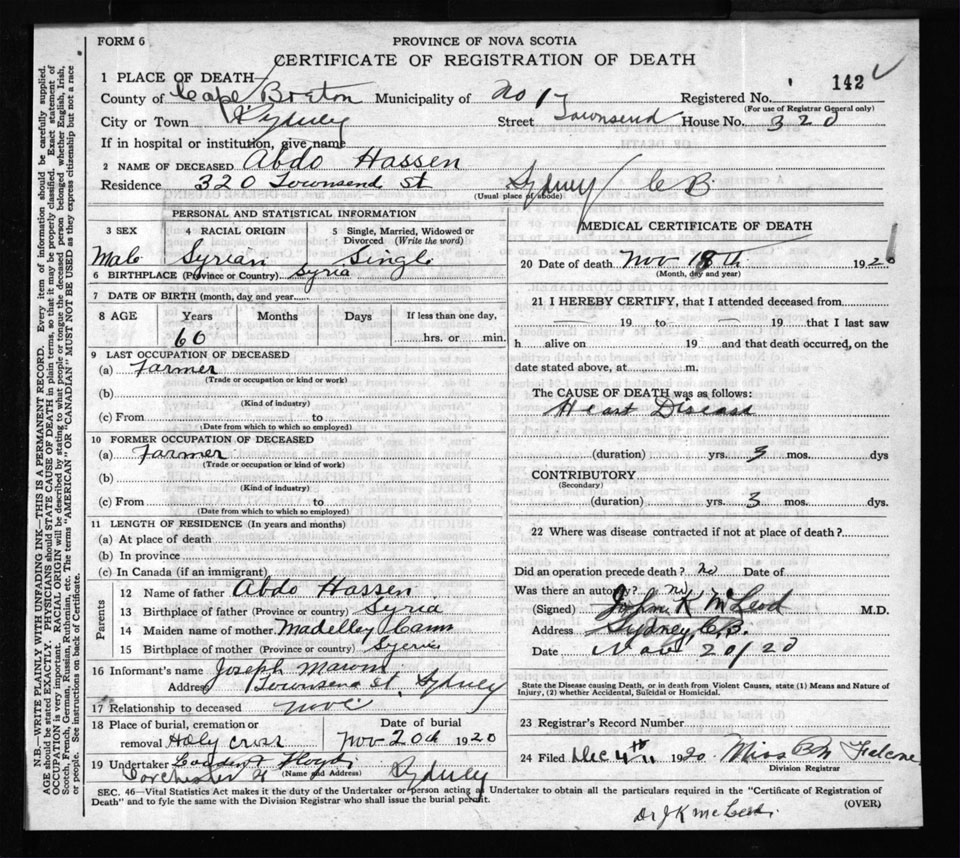 FORM 6
PROVINCE OF NOVA SCOTIA
CERTIFICATE OF REGISTRATION OF DEATH
1 PLACE OF DEATH
142
County of Cape Breton Municipality of No 17 Registered No.
(For use of Registrar General only)
City or Town Sydney Street Townsend House No. 320
If in hospital or institution, give name
2 NAME OF DECEASED Abdo Hassen
Residence 320 Townsend St Sydney C B
(Usual place of abode)
PERSONAL AND STATISTICAL INFORMATION
3 SEX 4 RACIAL ORIGIN 5 Single, Married, Widowed or
Divorced (Write the word)
Male Syrian Single
6 BIRTHPLACE (Province or Country) Syria
7 DATE OF BIRTH (month, day and year)
8 AGE Years Months Days If less than one day,
60 hrs. or min.
9 LAST OCCUPATION OF DECEASED
(a) Farmer
(Trade or occupation or kind or work)
(b)
(Kind of industry)
(c) From to
(Date from which to which so employed)
10 FORMER OCCUPATION OF DECEASED
(a) Farmer
(Trade or occupation or kind of work)
(b)
(Kind of industry)
(c) From to
(Date from which to which so employed)
11 LENGTH OF RESIDENCE (In years and months)
(a) At place of death
(b) In province
(c) In Canada (if an immigrant)
Parents
12 Name of father Abdo Hassen
13 Birthplace of father (Province or country) Syria
14 Maiden name of mother
15 Birthplace of mother (Province or country) Syria
16 Informant's name Joseph
Address Townsend St. Sydney
17 Relationship to deceased
18 Place of burial, cremation or Date of burial
removal Holy Cross Nov 20th 1920
19 Undertaker
(Name and Address)
Dorchester St Sydney
MEDICAL CERTIFICATE OF DEATH
20 Date of death Nov 18th 1920
(Month, day and year)
21 I HEREBY CERTIFY, that I attended deceased from
19 to 19 that I last saw
h alive on 19 and that death occurred, on the
date stated above, at m.
The CAUSE OF DEATH was as follows:
Heart Disease
(duration) yrs. 3 mos. dys
CONTRIBUTORY
(Secondary)
(duration) yrs. 3 mos. dys.
22 Where was disease contracted if not at place of death?
Did an operation precede death? No Date of
Was there an autopsy? No
(Signed) John K McLeod M.D.
Address Sydney, C.B.
Date Nov 20/20
State the Disease causing Death, or in death from Violent Causes, state (1) Means and Nature of
Injury, (2) whether Accidental, Suicidal or Homicidal.
23 Registrar's Record Number
24 Filed Dec 4th 1920. Miss
Division Registrar
SEC. 46—Vital Statistics Act makes it the duty of the Undertaker or person acting as Undertaker to obtain all the particulars required in the "Certificate of Registration of
Death" and to fyle the same with the Division Registrar who shall issue the burial permit.
(OVER)
Dr J K McLeod.
N.B.—WRITE PLAINLY WITH UNFADING INK—THIS IS A PERMANENT RECORD. Every item of information should be carefully supplied.
AGE should be stated EXACTLY. PHYSICIANS should STATE CAUSE OF DEATH in plain terms, so that it may be properly classified. Exact statement of
OCCUPATION is very important. RACIAL ORIGIN will be described by stating to what people or tongue the deceased person belonged whether English, Irish,
Scotch, French, German, Russian, Ruthenian, etc. The terms "AMERICAN" OR "CANADIAN" MUST NOT BE USED as they express citizenship but not a race
or people. See instructions on back of Certificate.